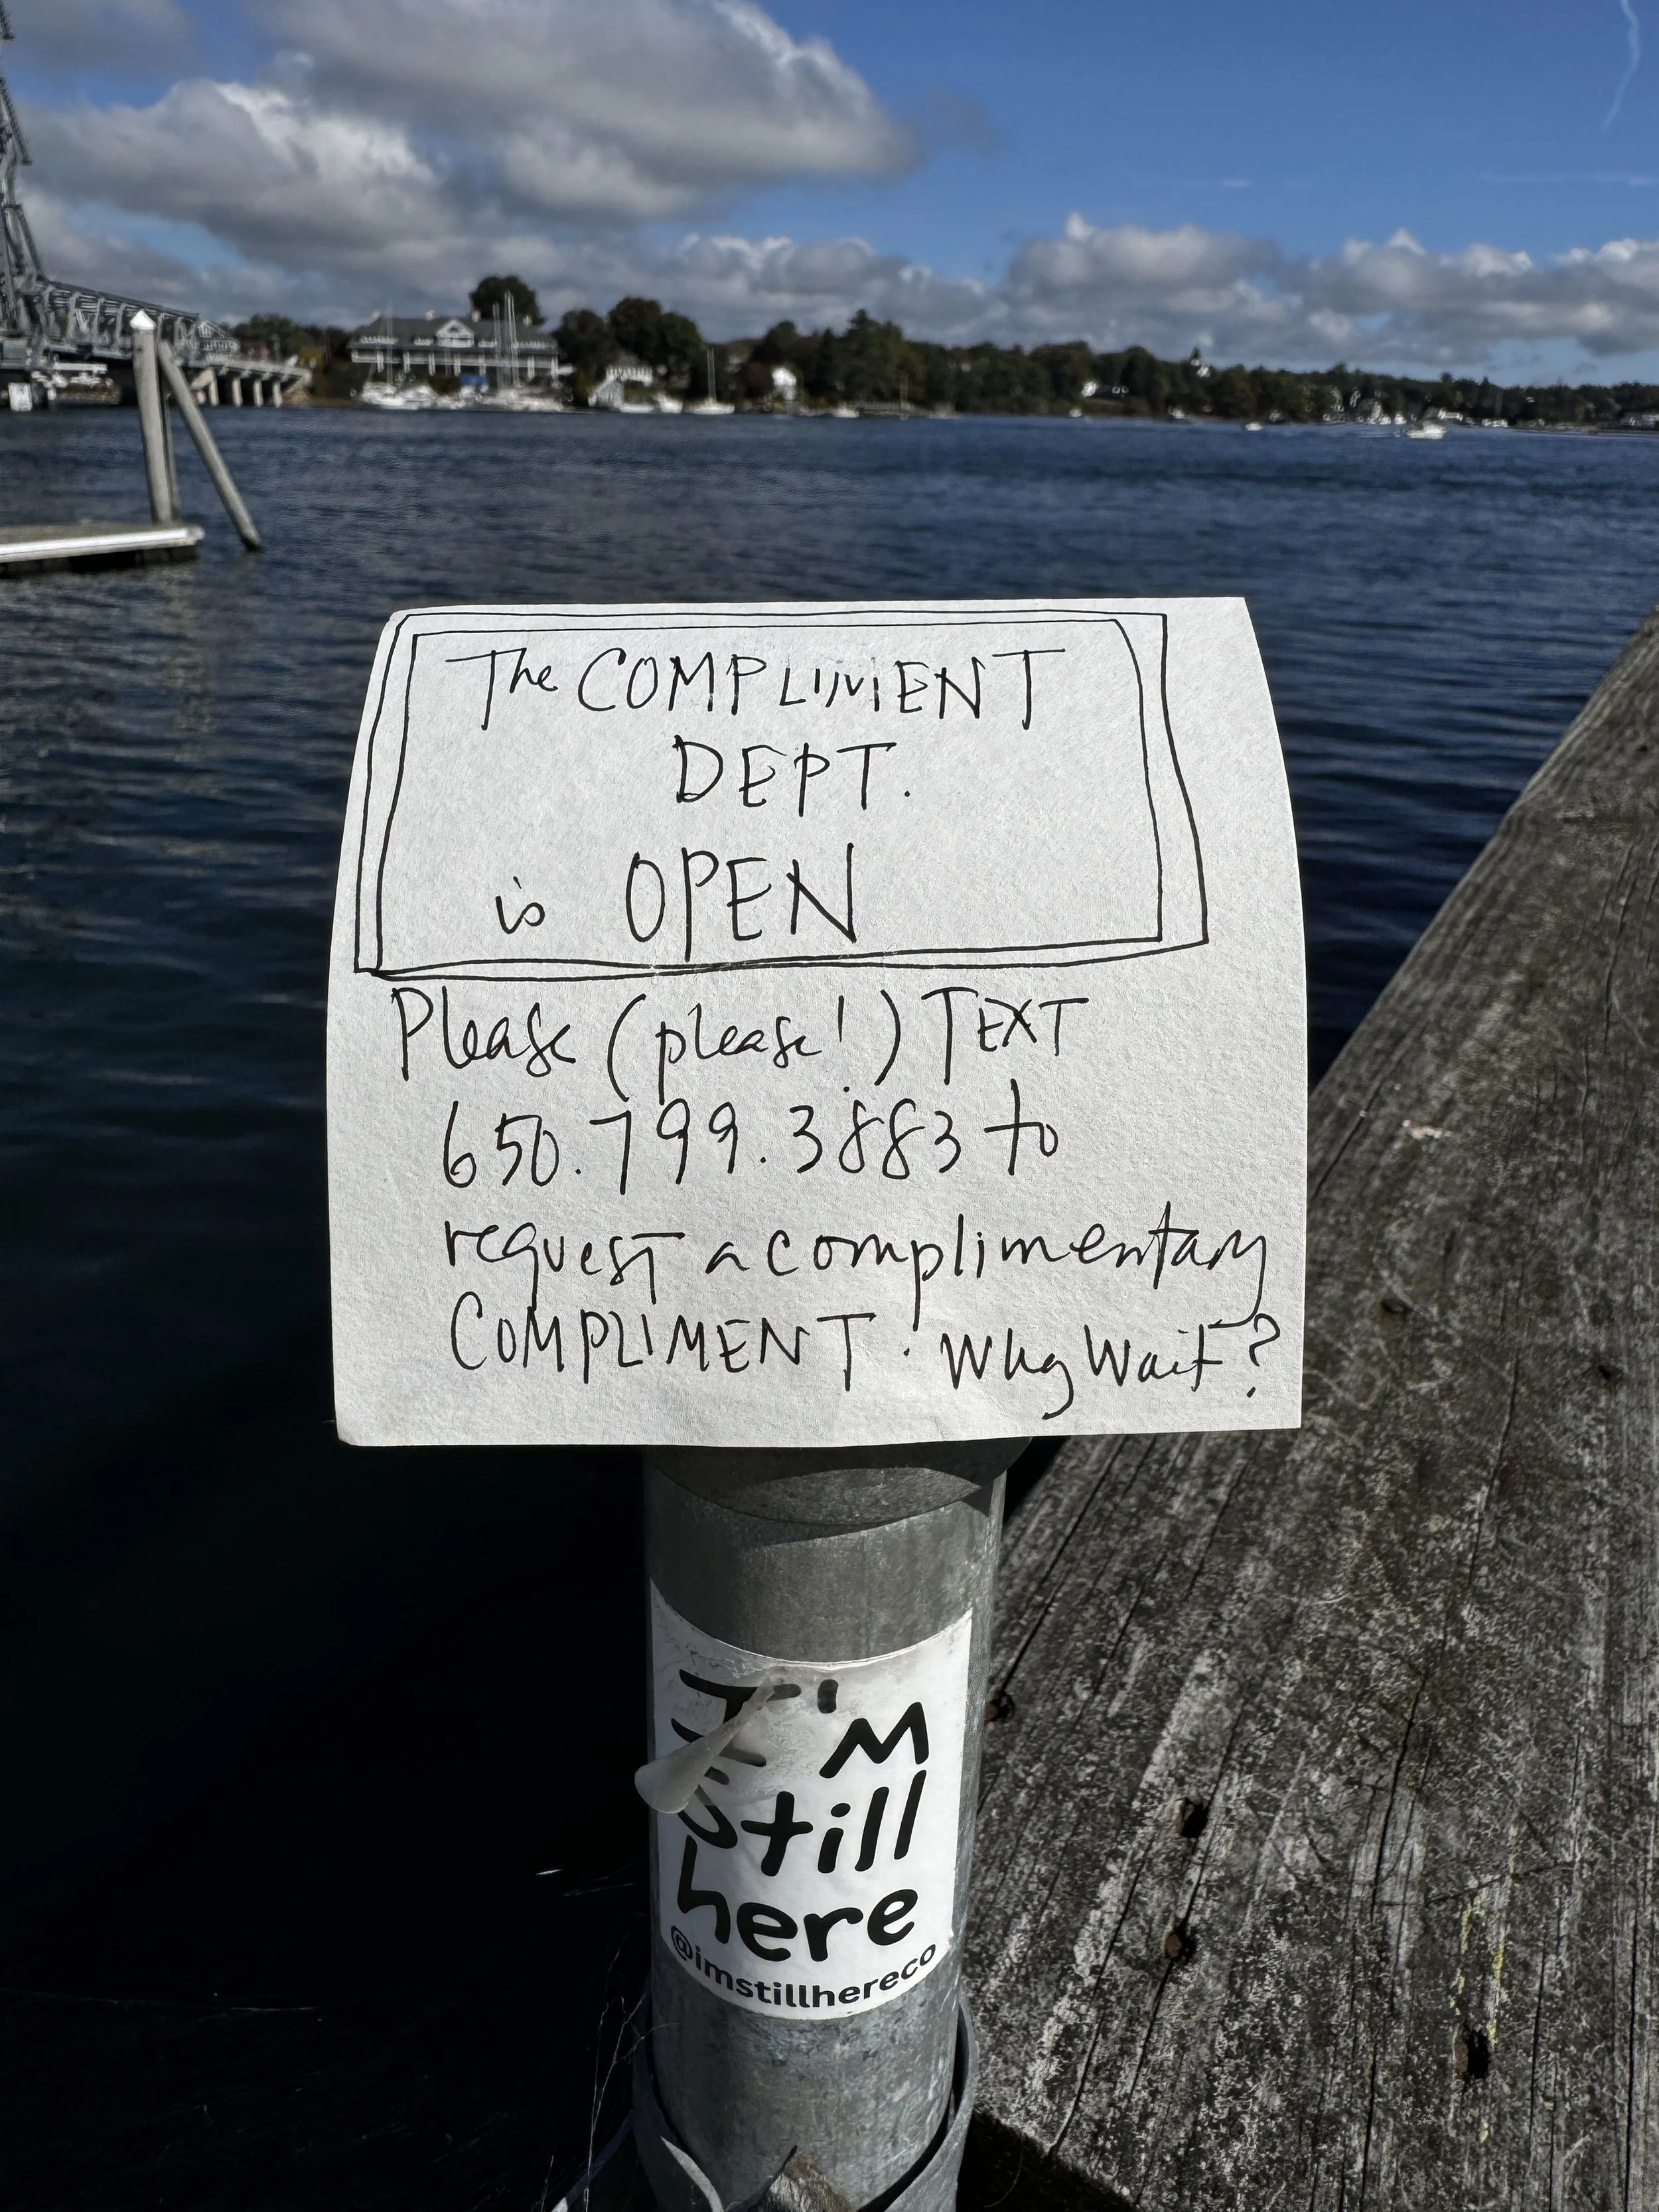 The COMPLIMENT
DEPT.
is OPEN
Please (please!) TEXT
650.799.3883 to
request a complimentary
COMPLIMENT. Why Wait?
I'm
Still
here
@imstillhereco